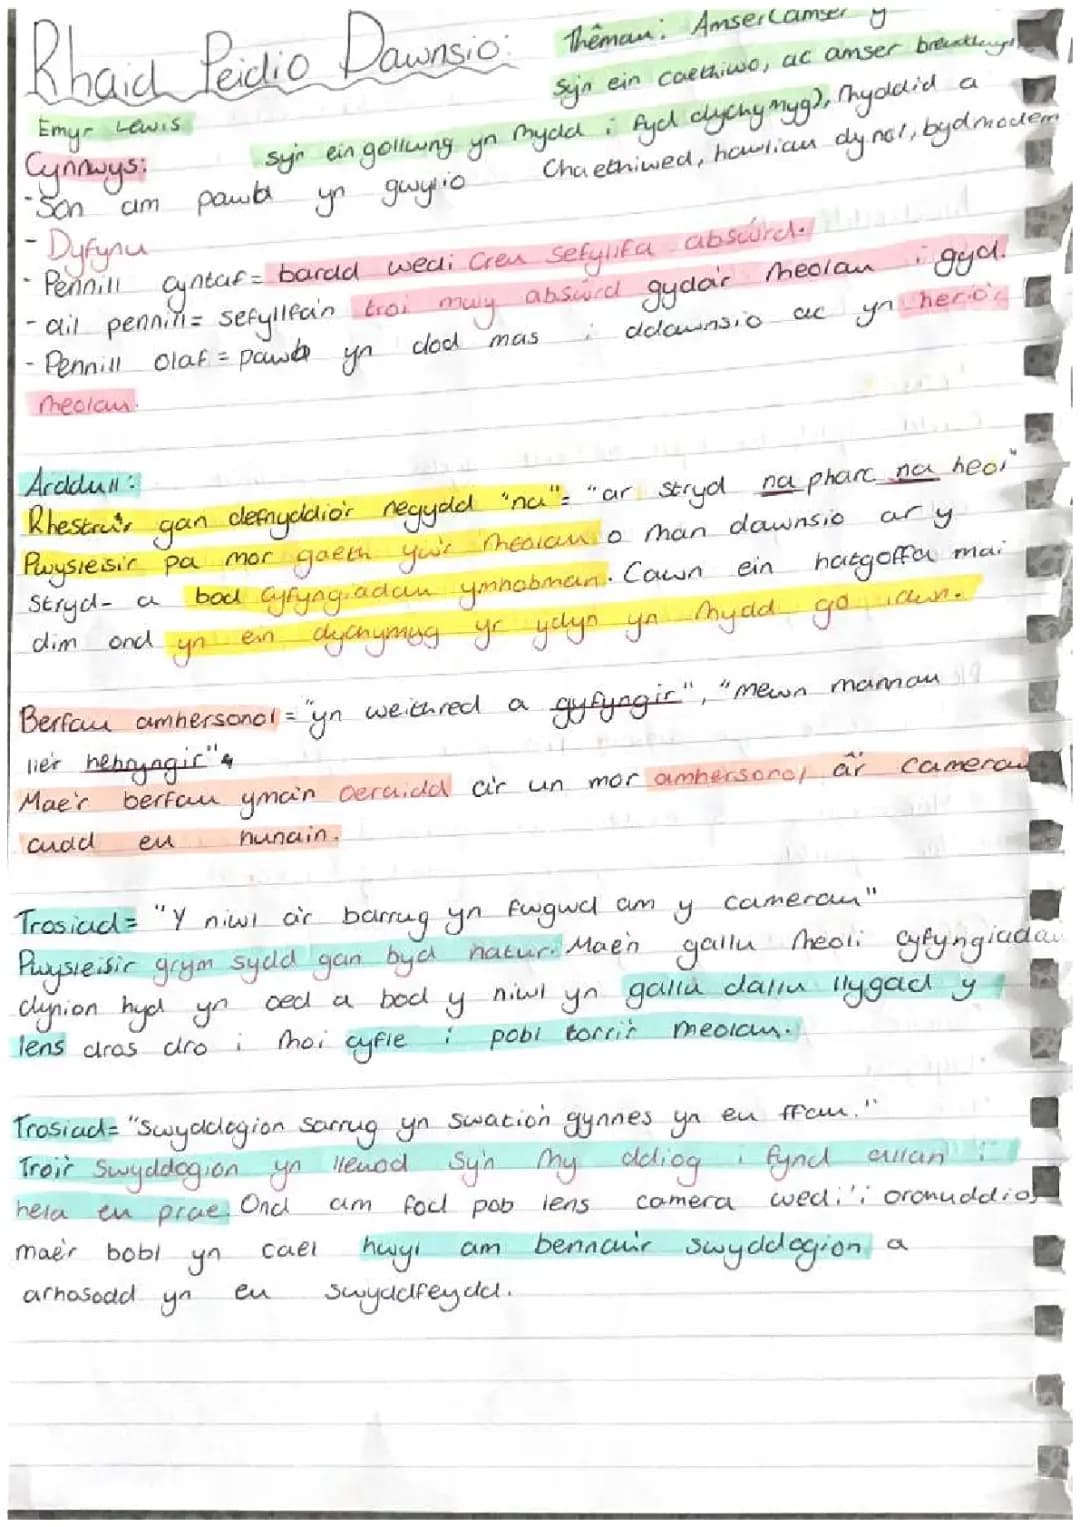 Rhaid Peidio Dawnsio:
Thêmau: Amser (amser y
Emyr Lewis
syn ein caethiwo, ac amser breuddwyd
syn ein gollwng yn rhydd i fyd dychymyg), rhyddid a
Chaethiwed, hawliau dynol, byd modern
Cynnwys:
- Sôn am pawb yn gwylio
- Dyfynu
- Pennill cyntaf = bardd wedi creu sefyllfa abswrd.
- ail pennill = sefyllfa'n troi mwy abswrd gyda'r rheolau i gyd.
- Pennill olaf = pawb yn dod mas i ddawnsio ac yn herio'r
rheolau.
Arddull:
Rhestru'r gan defnyddio'r negydd "na" = "ar stryd na pharc na heol"
Pwysleisir pa mor gaeth yw'r rheolau o rhan dawnsio ar y
stryd - a bod cyfyngiadau ymhobman. Cawn ein hatgoffa mai
dim ond yn ein dychymyg yr ydyn yn rhydd go iawn.
Berfau amhersonol = "yn weithred a gyfyngir", "mewn mannau
lle'r hebryngir"
Mae'r berfau yma'n oeraidd a'r un mor amhersonol â'r camerau
cudd eu hunain.
Trosiad = "Y niwl a'r barrug yn fwgwd am y camerau"
Pwysleisir grym sydd gan byd natur. Mae'n gallu rheoli cyfyngiadau
dynion hyd yn oed a bod y niwl yn gallu dallu llygad y
lens dros dro i rhoi cyfle i pobl torri'r rheolau.
Trosiad = "Swyddogion sarrug yn swatio'n gynnes yn eu ffau."
Troi'r swyddogion yn llewod sy'n rhy ddiog i fynd allan i
hela eu prae. Ond am fod pob lens camera wedi'i oronuddio,
mae'r bobl yn cael hwyl am bennau'r swyddogion a
arhosodd yn eu swyddfeydd.